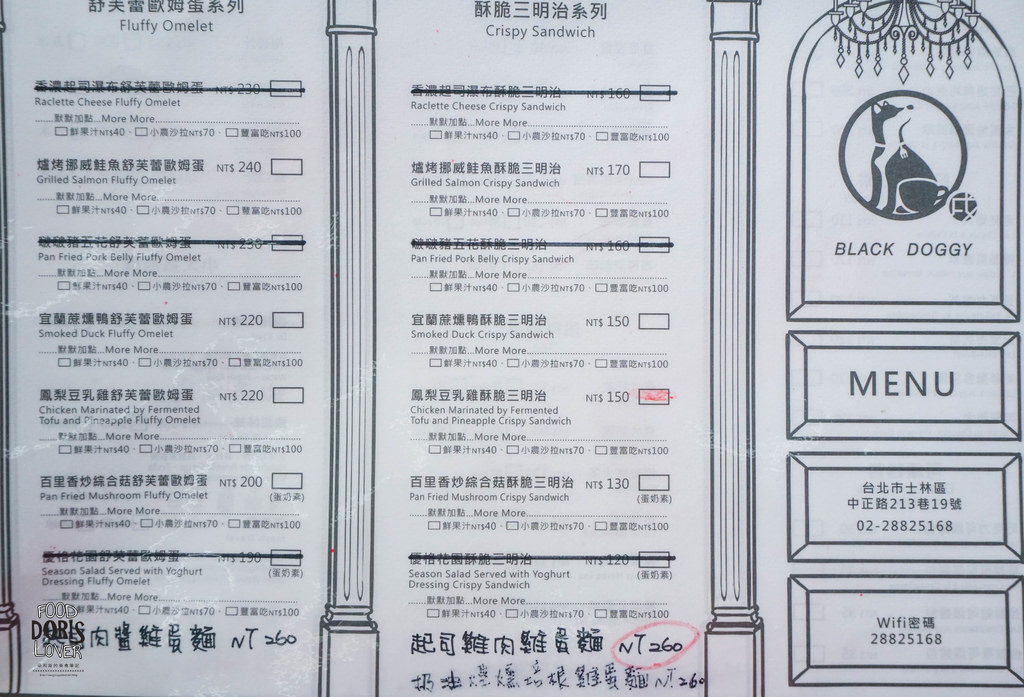 舒芙蕾歐姆蛋系列
Fluffy Omelet
香濃起司瀑布舒芙蕾歐姆蛋 NT$ 230
Raclette Cheese Fluffy Omelet
默默加點...More More
鮮果汁NT$40、小農沙拉NT$70、豐富吃NT$100
爐烤挪威鮭魚舒芙蕾歐姆蛋 NT$ 240
Grilled Salmon Fluffy Omelet
默默加點...More More
鮮果汁NT$40、小農沙拉NT$70、豐富吃NT$100
啵啵豬五花舒芙蕾歐姆蛋 NT$ 230
Pan Fried Pork Belly Fluffy Omelet
默默加點...More More
鮮果汁NT$40、小農沙拉NT$70、豐富吃NT$100
宜蘭蔗燻鴨舒芙蕾歐姆蛋 NT$ 220
Smoked Duck Fluffy Omelet
默默加點...More More
鮮果汁NT$40、小農沙拉NT$70、豐富吃NT$100
鳳梨豆乳雞舒芙蕾歐姆蛋 NT$ 220
Chicken Marinated by Fermented
Tofu and Pineapple Fluffy Omelet
默默加點...More More
鮮果汁NT$40、小農沙拉NT$70、豐富吃NT$100
百里香炒綜合菇舒芙蕾歐姆蛋 NT$ 200
Pan Fried Mushroom Fluffy Omelet (蛋奶素)
默默加點...More More
鮮果汁NT$40、小農沙拉NT$70、豐富吃NT$100
優格花園舒芙蕾歐姆蛋 NT$ 190
Season Salad Served with Yoghurt (蛋奶素)
Dressing Fluffy Omelet
默默加點...More More
鮮果汁NT$40、小農沙拉NT$70、豐富吃NT$100
肉醬雞蛋麵 NT 260
FOOD
DORIS
LOVER
酥脆三明治系列
Crispy Sandwich
香濃起司瀑布酥脆三明治 NT$ 160
Raclette Cheese Crispy Sandwich
默默加點...More More
鮮果汁NT$40、小農沙拉NT$70、豐富吃NT$100
爐烤挪威鮭魚酥脆三明治 NT$ 170
Grilled Salmon Crispy Sandwich
默默加點...More More
鮮果汁NT$40、小農沙拉NT$70、豐富吃NT$100
啵啵豬五花酥脆三明治 NT$ 160
Pan Fried Pork Belly Crispy Sandwich
默默加點...More More
鮮果汁NT$40、小農沙拉NT$70、豐富吃NT$100
宜蘭蔗燻鴨酥脆三明治 NT$ 150
Smoked Duck Crispy Sandwich
默默加點...More More
鮮果汁NT$40、小農沙拉NT$70、豐富吃NT$100
鳳梨豆乳雞酥脆三明治 NT$ 150
Chicken Marinated by Fermented
Tofu and Pineapple Crispy Sandwich
默默加點...More More
鮮果汁NT$40、小農沙拉NT$70、豐富吃NT$100
百里香炒綜合菇酥脆三明治 NT$ 130
Pan Fried Mushroom Crispy Sandwich (蛋奶素)
默默加點...More More
鮮果汁NT$40、小農沙拉NT$70、豐富吃NT$100
優格花園酥脆三明治 NT$ 120
Season Salad Served with Yoghurt (蛋奶素)
Dressing Crispy Sandwich
默默加點...More More
鮮果汁NT$40、小農沙拉NT$70、豐富吃NT$100
起司雞肉雞蛋麵 NT 260
奶油煙燻培根雞蛋麵 NT 260
BLACK DOGGY
MENU
台北市士林區
中正路213巷19號
02-28825168
Wifi密碼
28825168